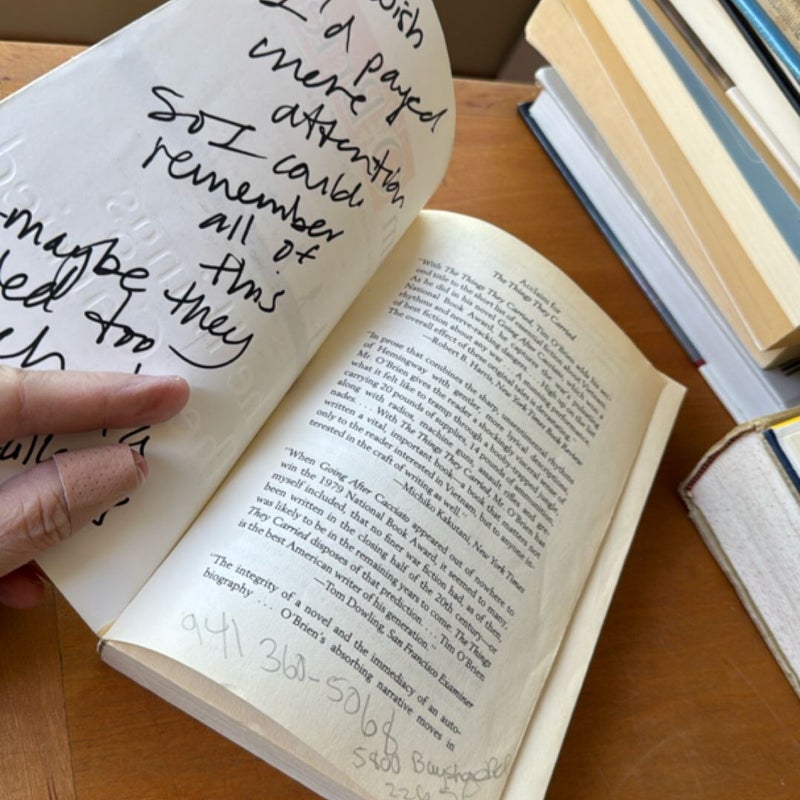 wish
I'd payed
more
attention
So I could
remember
all of
this
-maybe they
ded too
Acclaim for
The Things They Carried
"With The Things They Carried, Tim O'Brien adds his sec-
ond title to the short list of essential fiction about Vietnam.
As he did in his novel Going After Cacciato, which won a
National Book Award, he captures the war's pulsating
rhythms and nerve-racking dangers. . . . High up on the list
of best fiction about any war . . .
The overall effect of these original tales is devastating."
—Robert R. Harris, New York Times Book Review
"In prose that combines the sharp, unsentimental rhythms
of Hemingway with gentler, more lyrical descriptions,
Mr. O'Brien gives the reader a shockingly visceral sense of
what it felt like to tramp through a booby-trapped jungle,
carrying 20 pounds of supplies, 14 pounds of ammunition,
along with radios, machine guns, assault rifles and gre-
nades. . . . With The Things They Carried, Mr. O'Brien has
written a vital, important book—a book that matters not
only to the reader interested in Vietnam, but to anyone in-
terested in the craft of writing as well."
—Michiko Kakutani, New York Times
"When Going After Cacciato appeared out of nowhere to
win the 1979 National Book Award, it seemed to many,
myself included, that no finer war fiction had, as of then,
been written in the closing half of the 20th century—or
was likely to be in the remaining years to come. The Things
They Carried disposes of that prediction. . . . Tim O'Brien
is the best American writer of his generation."
—Tom Dowling, San Francisco Examiner
"The integrity of a novel and the immediacy of an auto-
biography . . . O'Brien's absorbing narrative moves in
941 360-5068
5800